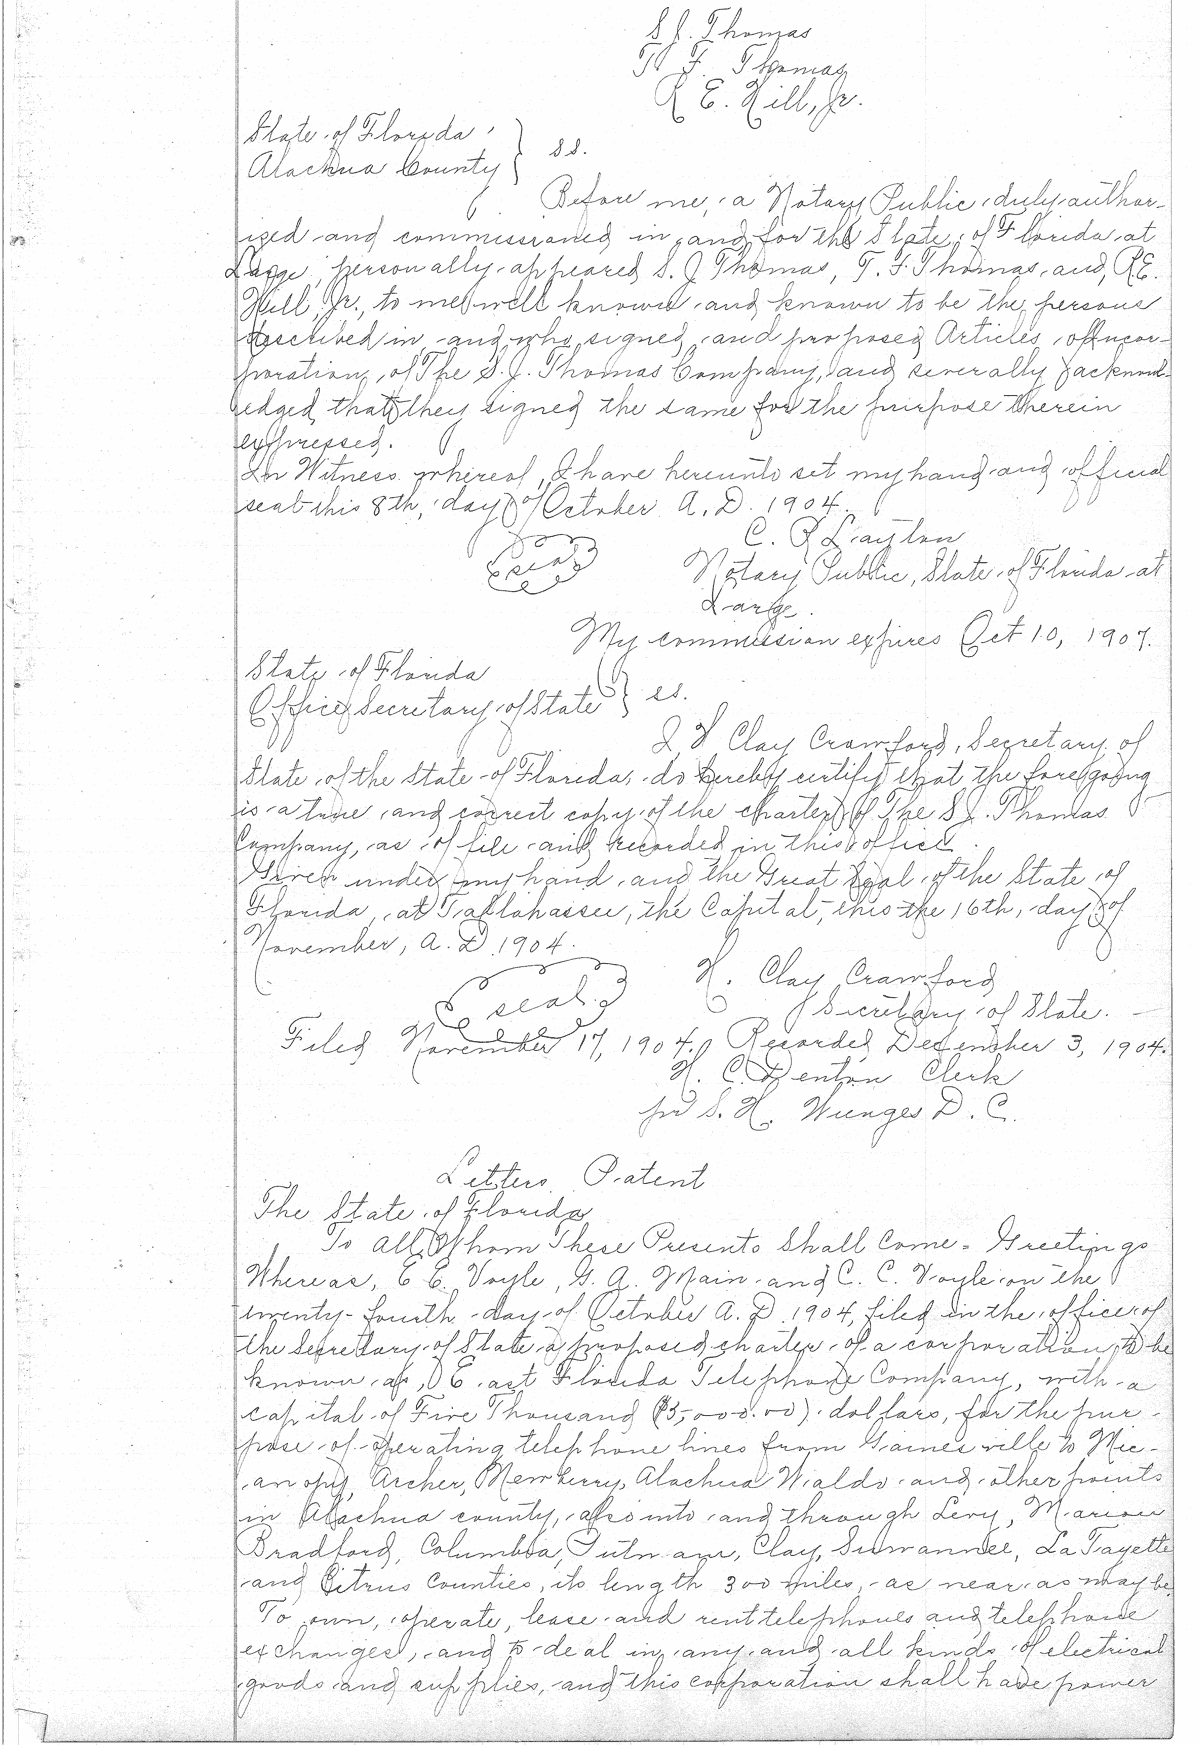 S. J. Thomas
T. F. Thomas
R. E. Hill, Jr.
State of Florida
Alachua County } ss.
Before me, a Notary Public duly author-
ized and commissioned in and for the State of Florida at
Large, personally appeared S. J Thomas, T. F. Thomas and R E.
Hill, Jr., to me well known and known to be the persons
described in and who signed and proposed Articles of Incor-
poration of The S. J. Thomas Company, and severally acknowl-
edged that they signed the same for the purpose therein
expressed.
In Witness whereof, I have hereunto set my hand and official
seal this 8th, day of October A. D. 1904.
C. R Layton
seal
Notary Public, State of Florida at
Large.
My commission expires Oct 10, 1907.
State of Florida
Office Secretary of State } ss.
I, H Clay Crawford, Secretary of
State of the State of Florida, do hereby certify that the foregoing
is a true and correct copy of the charter of The S. J. Thomas
Company, as of file and recorded in this office.
Given under my hand and the Great Seal of the State of
Florida, at Tallahassee, the Capital, this the 16th, day of
November, A. D. 1904.
H. Clay Crawford
seal.
Secretary of State.
Filed November 17, 1904. Recorded December 3, 1904.
H. C. Denton Clerk
pr S. H. Wienges D. C.
Letters Patent
The State of Florida
To All Whom These Presents Shall Come - Greetings
Whereas, E E. Voyle, G. A. Main and C. C. Voyle on the
twenty-fourth day of October A. D. 1904, filed in the office of
the Secretary of State a proposed charter of a corporation to be
known as East Florida Telephone Company, with a
capital of Five Thousand ($5,000.00) dollars, for the pur-
pose of operating telephone lines from Gainesville to Mic-
anopy, Archer, Newberry, Alachua Waldo and other points
in Alachua county, also into and through Levy, Marion
Bradford, Columbia, Putnam, Clay, Suwannee, La Fayette
and Citrus Counties, its length 300 miles, as near as may be.
To own, operate, lease and rent telephones and telephone
exchanges, and to deal in any and all kinds of electrical
goods and supplies, and this corporation shall have power